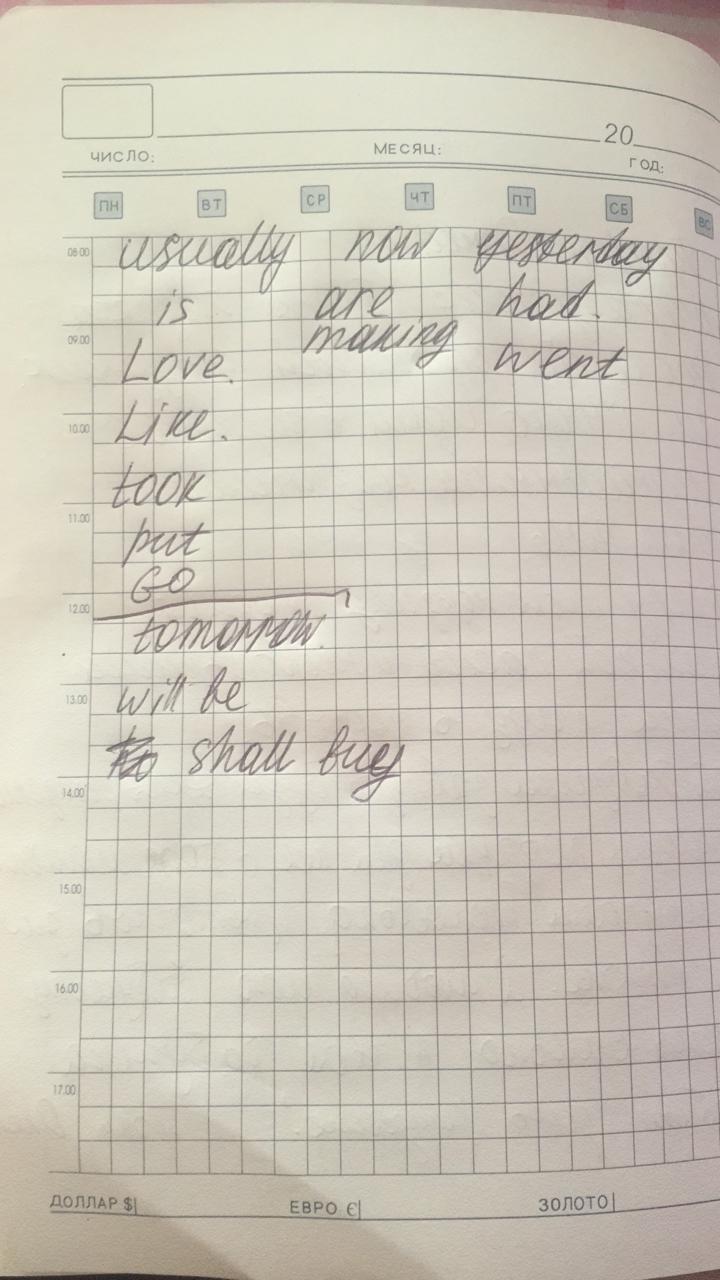 20
ЧИСЛО: МЕСЯЦ: ГОД:
ПН ВТ СР ЧТ ПТ СБ ВС
08:00 usually now yesterday
is are had.
09.00 making
Love. went
10.00 Like.
took
11.00 put
GO
12.00 tomorrow.
13.00 will be
shall buy
14.00
15.00
16.00
17.00
ДОЛЛАР $ ЕВРО € ЗОЛОТО